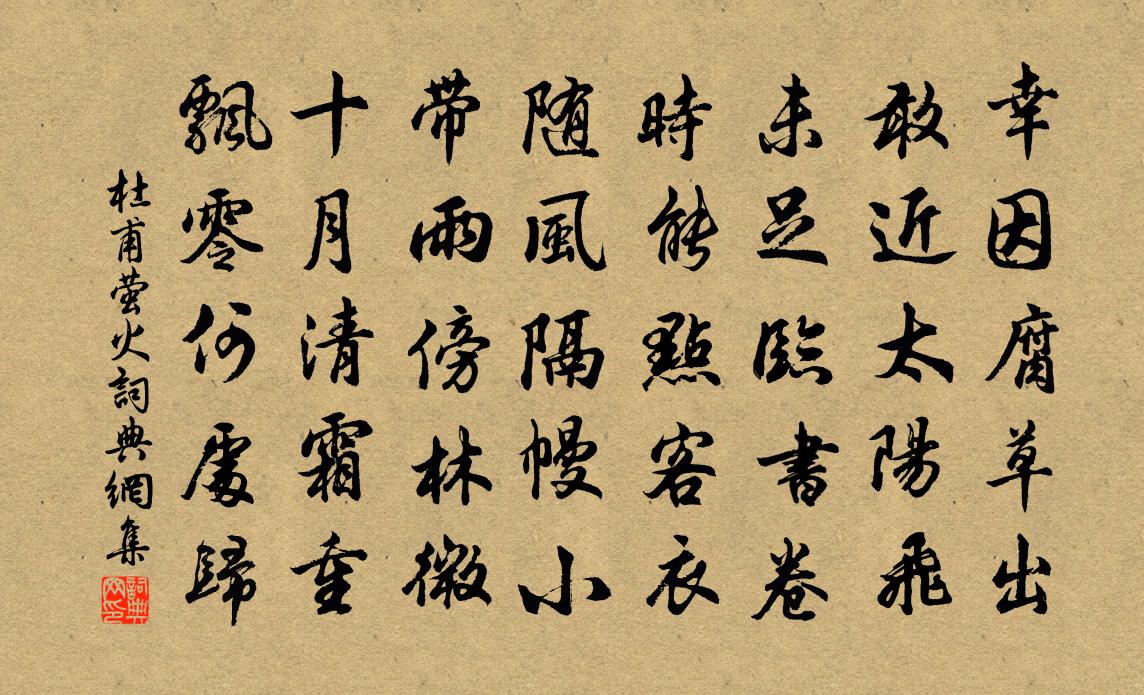 幸因腐草出
敢近太陽飛
未足臨書卷
時能點客衣
随風隔幔小
带雨傍林微
十月清霜重
飄零何處歸
杜甫萤火詞典網集
詞典网印